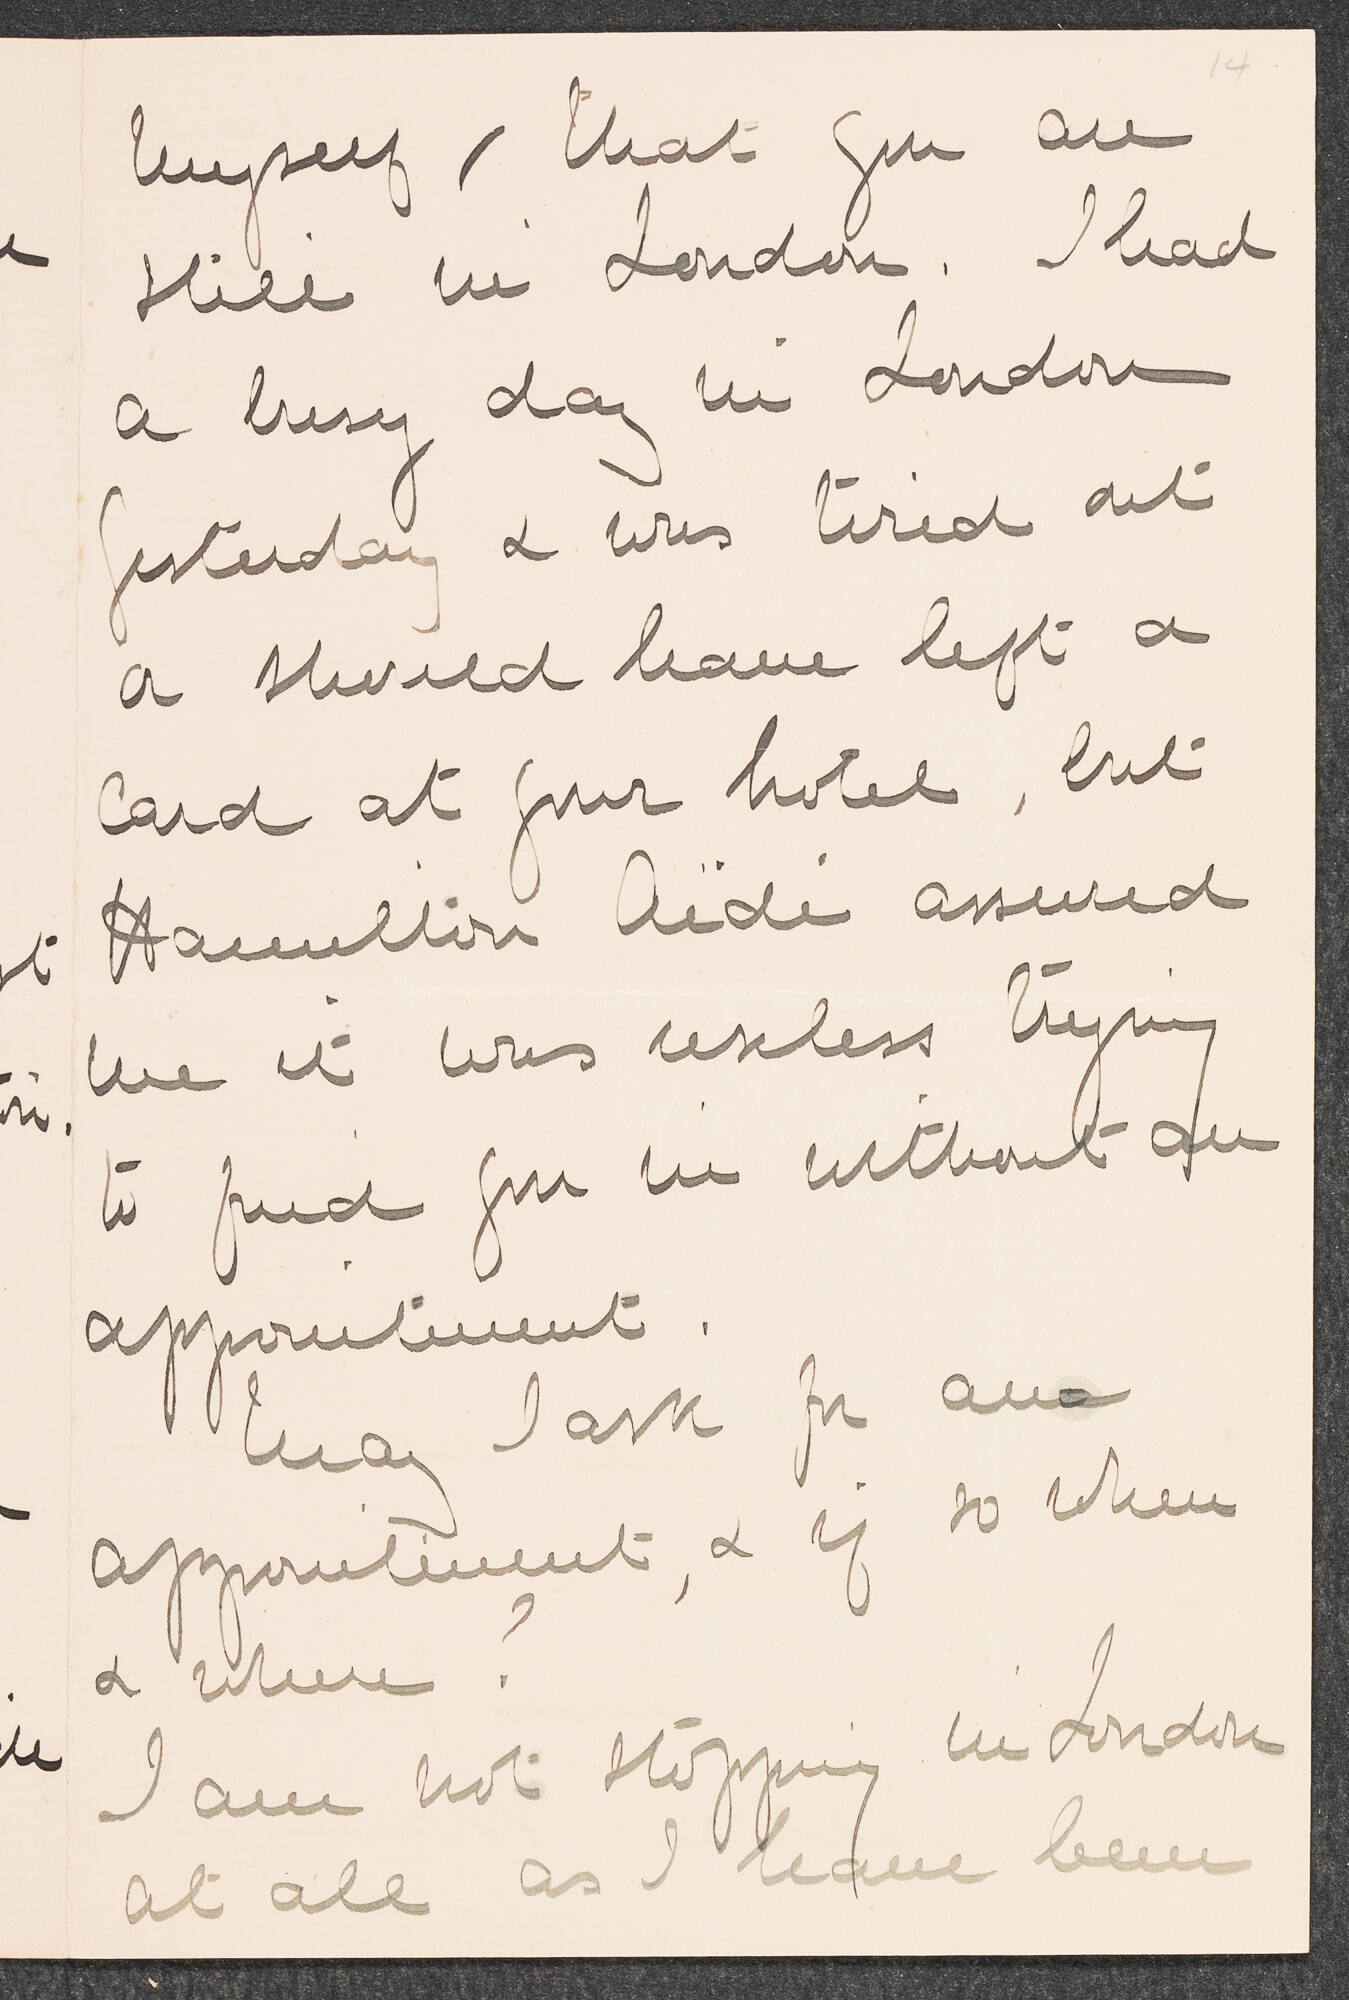 14
myself, that you are
still in London. I had
a busy day in London
yesterday & was tired out
or should have left a
card at your hotel, but
Hamilton Aïdé assured
me it was useless trying
to find you in without an
appointment.
May I ask for an
appointment, & if so when
& where?
I am not stopping in London
at all as I have been